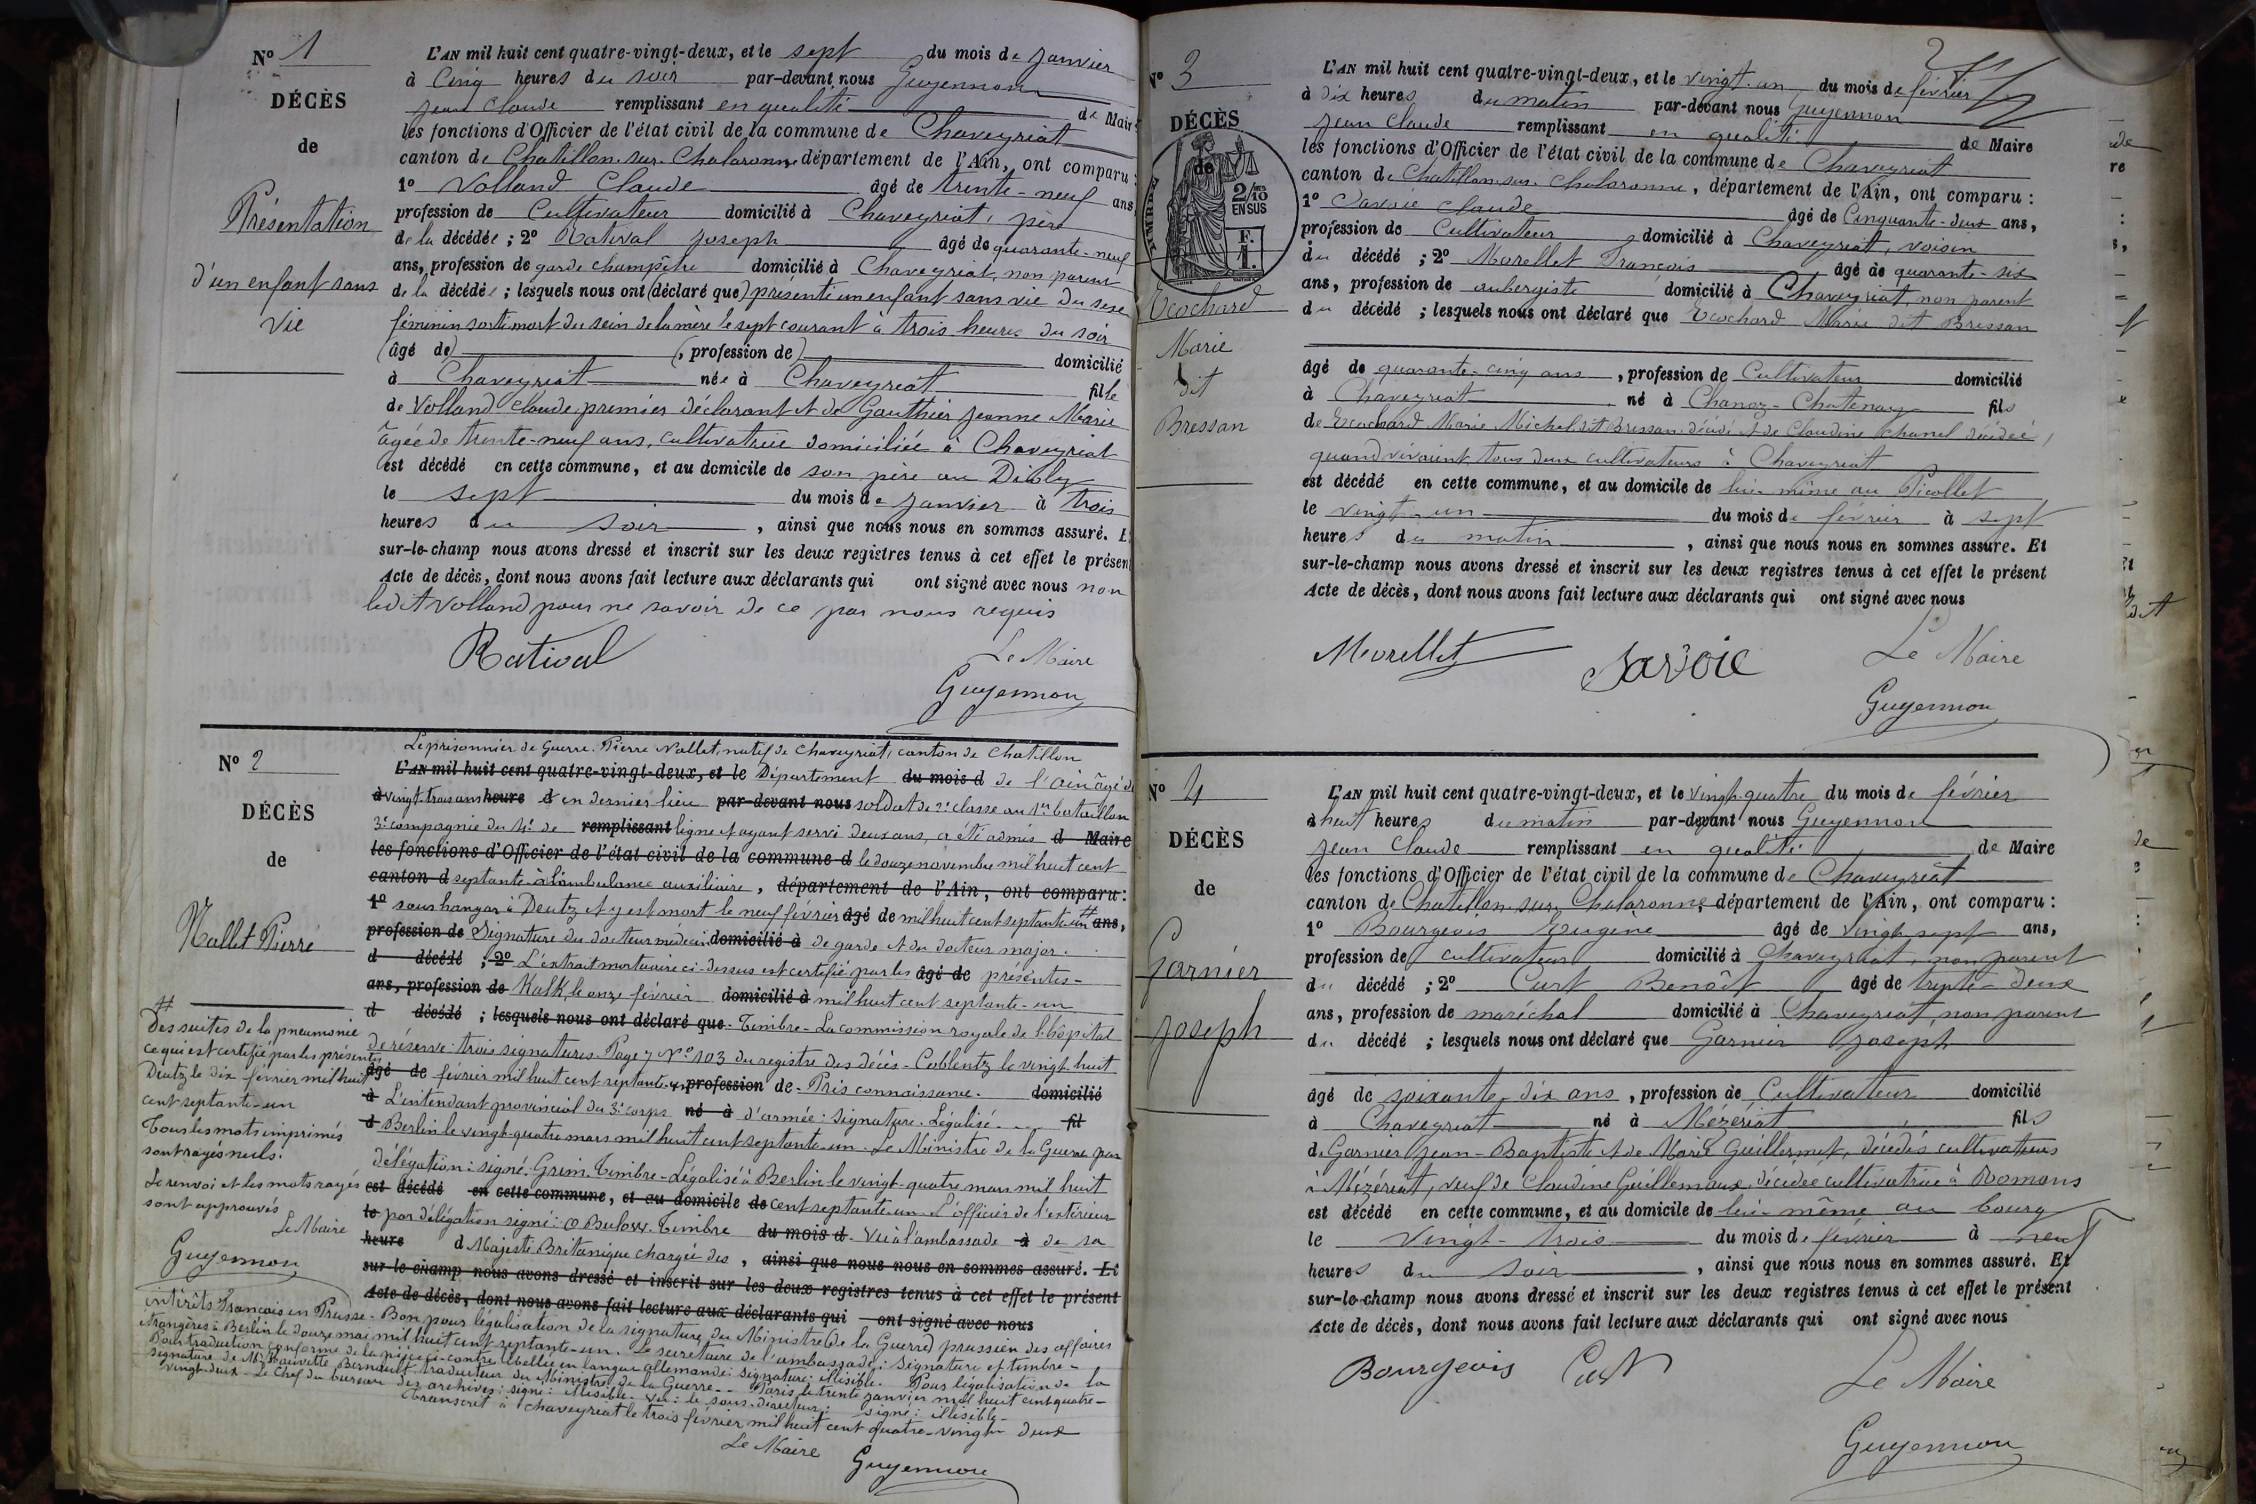 N° 1
DÉCÈS
de
Présentation
d'un enfant sans
vie
L'AN mil huit cent quatre-vingt-deux, et le sept du mois de janvier
à cinq heures du soir par-devant nous Guyennon
Jean Claude remplissant en qualité de Maire
les fonctions d'Officier de l'état civil de la commune de Chaveyriat
canton de Chatillon-sur-Chalaronne département de l'Ain, ont comparu :
1° Volland Claude âgé de trente-neuf ans,
profession de Cultivateur domicilié à Chaveyriat, père
de la décédée ; 2° Ratival Joseph âgé de quarante-neuf
ans, profession de garde champêtre domicilié à Chaveyriat, non parent
de la décédée ; lesquels nous ont (déclaré que) présenté un enfant sans vie du sexe
féminin sorti mort du sein de la mère le sept courant à trois heures du soir
(âgé de) (, profession de) domicilié
à Chaveyriat née à Chaveyriat fille
de Volland Claude premier déclarant et de Gauthier Jeanne Marie
âgée de trente-neuf ans, cultivatrice domiciliée à Chaveyriat
est décédé en cette commune, et au domicile de son père au
le sept du mois de janvier à trois
heures du soir , ainsi que nous nous en sommes assuré. Et
sur-le-champ nous avons dressé et inscrit sur les deux registres tenus à cet effet le présent
Acte de décès, dont nous avons fait lecture aux déclarants qui ont signé avec nous non
ledit Volland pour ne savoir de ce par nous requis
Ratival
Le Maire
Guyennon
N° 2
DÉCÈS
de
Nallet Pierre
#
Des suites de la pneumonie
ce qui est certifié par les présentes
Deutz le dix février mil huit
cent septante-un
Tous les mots imprimés
sont rayés nuls.
Le renvoi et les mots rayés
sont approuvés
Le Maire
Guyennon
Le prisonnier de Guerre. Pierre Nallet, natif de Chaveyriat, canton de Chatillon
L'AN mil huit cent quatre-vingt-deux, et le Département du mois d de l'Ain âgé de
à vingt-trois ans heure d en dernier lieu par-devant nous soldat de 2e classe au 1er bataillon
3e compagnie du 4e de remplissant ligne et ayant servi deux ans, a été admis d Maire
les fonctions d'Officier de l'état civil de la commune d le douze novembre mil huit cent
canton d septante à l'ambulance auxiliaire , département de l'Ain, ont comparu :
1° sous hangar à Deutz et y est mort le neuf février âgé de mil huit cent septante-un # ans,
profession de Signature du docteur médecin domicilié à de garde et du docteur major.
d décédé ; 2° L'extrait mortuaire ci-dessus est certifié par les âgé de présentes-
ans, profession de Kalk, le onze février domicilié à mil huit cent septante-un
d décédé ; lesquels nous ont déclaré que - Timbre - La commission royale de l'hôpital
de réserve : trois signatures. Page 7 N° 103 du registre des décès - Coblentz le vingt-huit
âgé de février mil huit cent septante-un profession de - Pris connaissance. domicilié
à L'intendant provincial du 3e corps né à d'armée : signature. Légalisé. fil
d Berlin le vingt-quatre mars mil huit cent septante-un. Le Ministre de la Guerre par
délégation : signé : Grim. Timbre - Légalisé à Berlin le vingt-quatre mars mil huit
est décédé en cette commune, et au domicile de cent septante-un. L'officier de l'extérieur
le par délégation signé : Bulow. Timbre du mois d - Vu à l'ambassade à de sa
heure d Majesté Britanique chargée des , ainsi que nous nous en sommes assuré. Et
sur-le-champ nous avons dressé et inscrit sur les deux registres tenus à cet effet le présent
Acte de décès, dont nous avons fait lecture aux déclarants qui ont signé avec nous
intérêts Français en Prusse - Bon pour légalisation de la signature du Ministre (de la Guerre) prussien des affaires
étrangères à Berlin le douze mai mil huit cent septante-un. Le secrétaire de l'ambassade : signature et timbre -
Pour traduction conforme de la pièce ci-contre libellée en langue allemande : signature : illisible. Pour légalisation de la
signature de Mr Bernault traducteur du Ministre de la Guerre - Paris le trente janvier mil huit cent quatre-
vingt-deux - Le Chef du bureau des archives : signé : illisible - Vu : le sous-directeur : signé : illisible -
Transcrit à Chaveyriat le trois février mil huit cent quatre-vingt deux
Le Maire
Guyennon
N° 3
DÉCÈS
de
2/10 EN SUS
F.
1.
Ecochard
Marie
dit
Bressan
L'AN mil huit cent quatre-vingt-deux, et le vingt-un du mois de février
à dix heures du matin par-devant nous Guyennon
Jean Claude remplissant en qualité de Maire
les fonctions d'Officier de l'état civil de la commune de Chaveyriat
canton de Chatillon-sur-Chalaronne, département de l'Ain, ont comparu :
1° Savoie Claude âgé de Cinquante-deux ans,
profession de Cultivateur domicilié à Chaveyriat, voisin
du décédé ; 2° Morellet François âgé de quarante-six
ans, profession de aubergiste domicilié à Chaveyriat, non parent
du décédé ; lesquels nous ont déclaré que Ecochard Marie dit Bressan
âgé de quarante-cinq ans , profession de Cultivateur domicilié
à Chaveyriat né à Chanoz-Chatenay fils
de Ecochard Marie Michel dit Bressan décédé et de Claudine Chanel décédée,
quand vivaient tous deux cultivateurs à Chaveyriat
est décédé en cette commune, et au domicile de lui-même au Picollet
le vingt-un du mois de février à sept
heures du matin , ainsi que nous nous en sommes assuré. Et
sur-le-champ nous avons dressé et inscrit sur les deux registres tenus à cet effet le présent
Acte de décès, dont nous avons fait lecture aux déclarants qui ont signé avec nous
Morellet
Savoie
Le Maire
Guyennon
N° 4
DÉCÈS
de
Garnier
Joseph
L'AN mil huit cent quatre-vingt-deux, et le vingt-quatre du mois de février
à huit heures du matin par-devant nous Guyennon
Jean Claude remplissant en qualité de Maire
les fonctions d'Officier de l'état civil de la commune de Chaveyriat
canton de Chatillon-sur-Chalaronne, département de l'Ain, ont comparu :
1° Bourgeois Eugène âgé de vingt-sept ans,
profession de cultivateur domicilié à Chaveyriat, non parent
du décédé ; 2° Curt Benoît âgé de trente-deux
ans, profession de maréchal domicilié à Chaveyriat, non parent
du décédé ; lesquels nous ont déclaré que Garnier Joseph
âgé de soixante-dix ans , profession de Cultivateur domicilié
à Chaveyriat né à Mézériat fils
de Garnier Jean-Baptiste et de Marie Guillermet, décédés cultivateurs
à Mézériat, veuf de Claudine Guillemaux, décédée cultivatrice à Romans
est décédé en cette commune, et au domicile de lui-même au bourg
le vingt-trois du mois de février à neuf
heures du soir , ainsi que nous nous en sommes assuré. Et
sur-le-champ nous avons dressé et inscrit sur les deux registres tenus à cet effet le présent
Acte de décès, dont nous avons fait lecture aux déclarants qui ont signé avec nous
Bourgeois
Curt
Le Maire
Guyennon